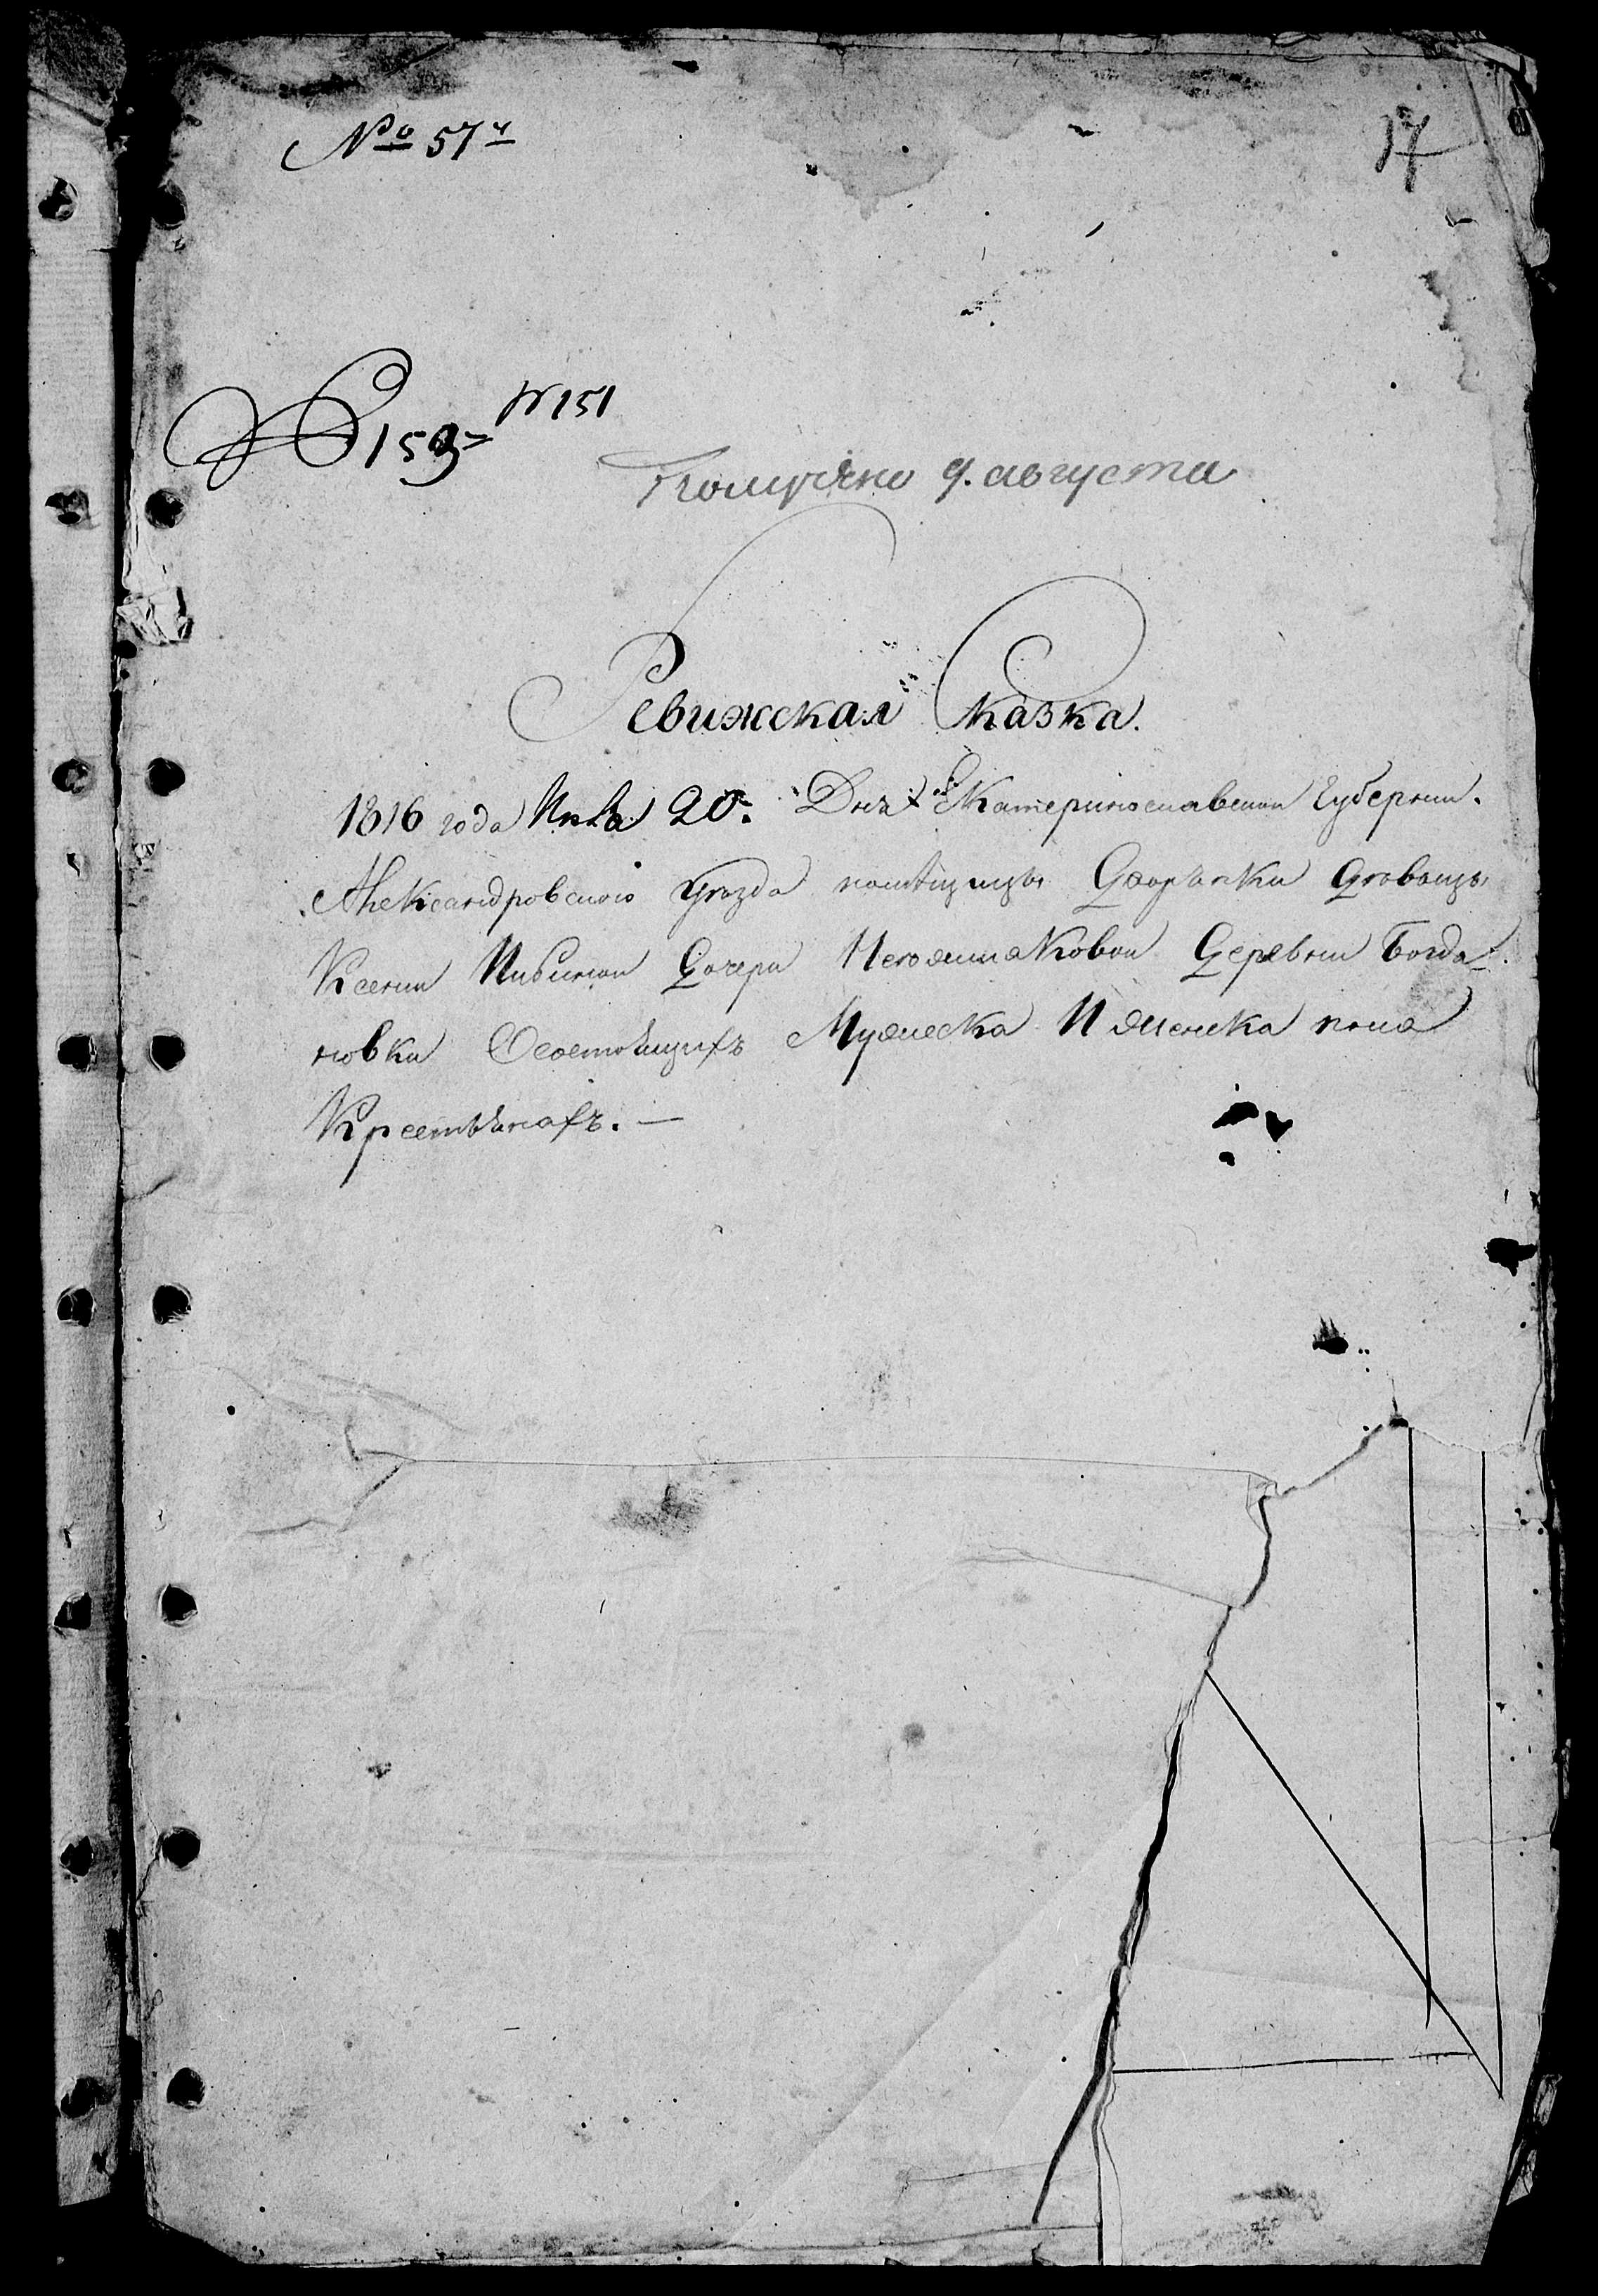 № 57й
17
№ 151
159
Получено 9. августа
Ревижская Сказка.
1816 года Июля 20. Дня Екатеринославской Губернии.
Александровского уезда помѣщицы Дворянки вдовицы
Ксении Дочери Деревни Богда-
новки Состоящихъ Мужеска И женска пола
Крестьянахъ. —